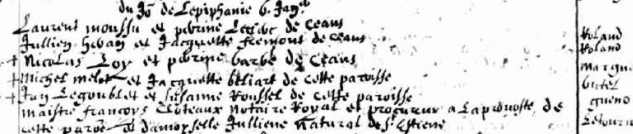 du Jo de Lepiphanie 6. Jan.er
Laurent moussu et perrine Leduc de Ceans
Jullien hevan et Jacquette fremont de Ceans
+ Nicolas Loy et perrine barbe de Ceans
+ Michel melet et Jacquette beliart de cette paroisse
+ Jan Legoublet et susanne Roussel de cette paroisse
maistre francoys Cloteaux Notaire Royal et procureur a Laprevoste de
cette paroe et damoyselle Jullienne Natural de St Estiene
Roland
Roland
margue
butel
queno
Letourn